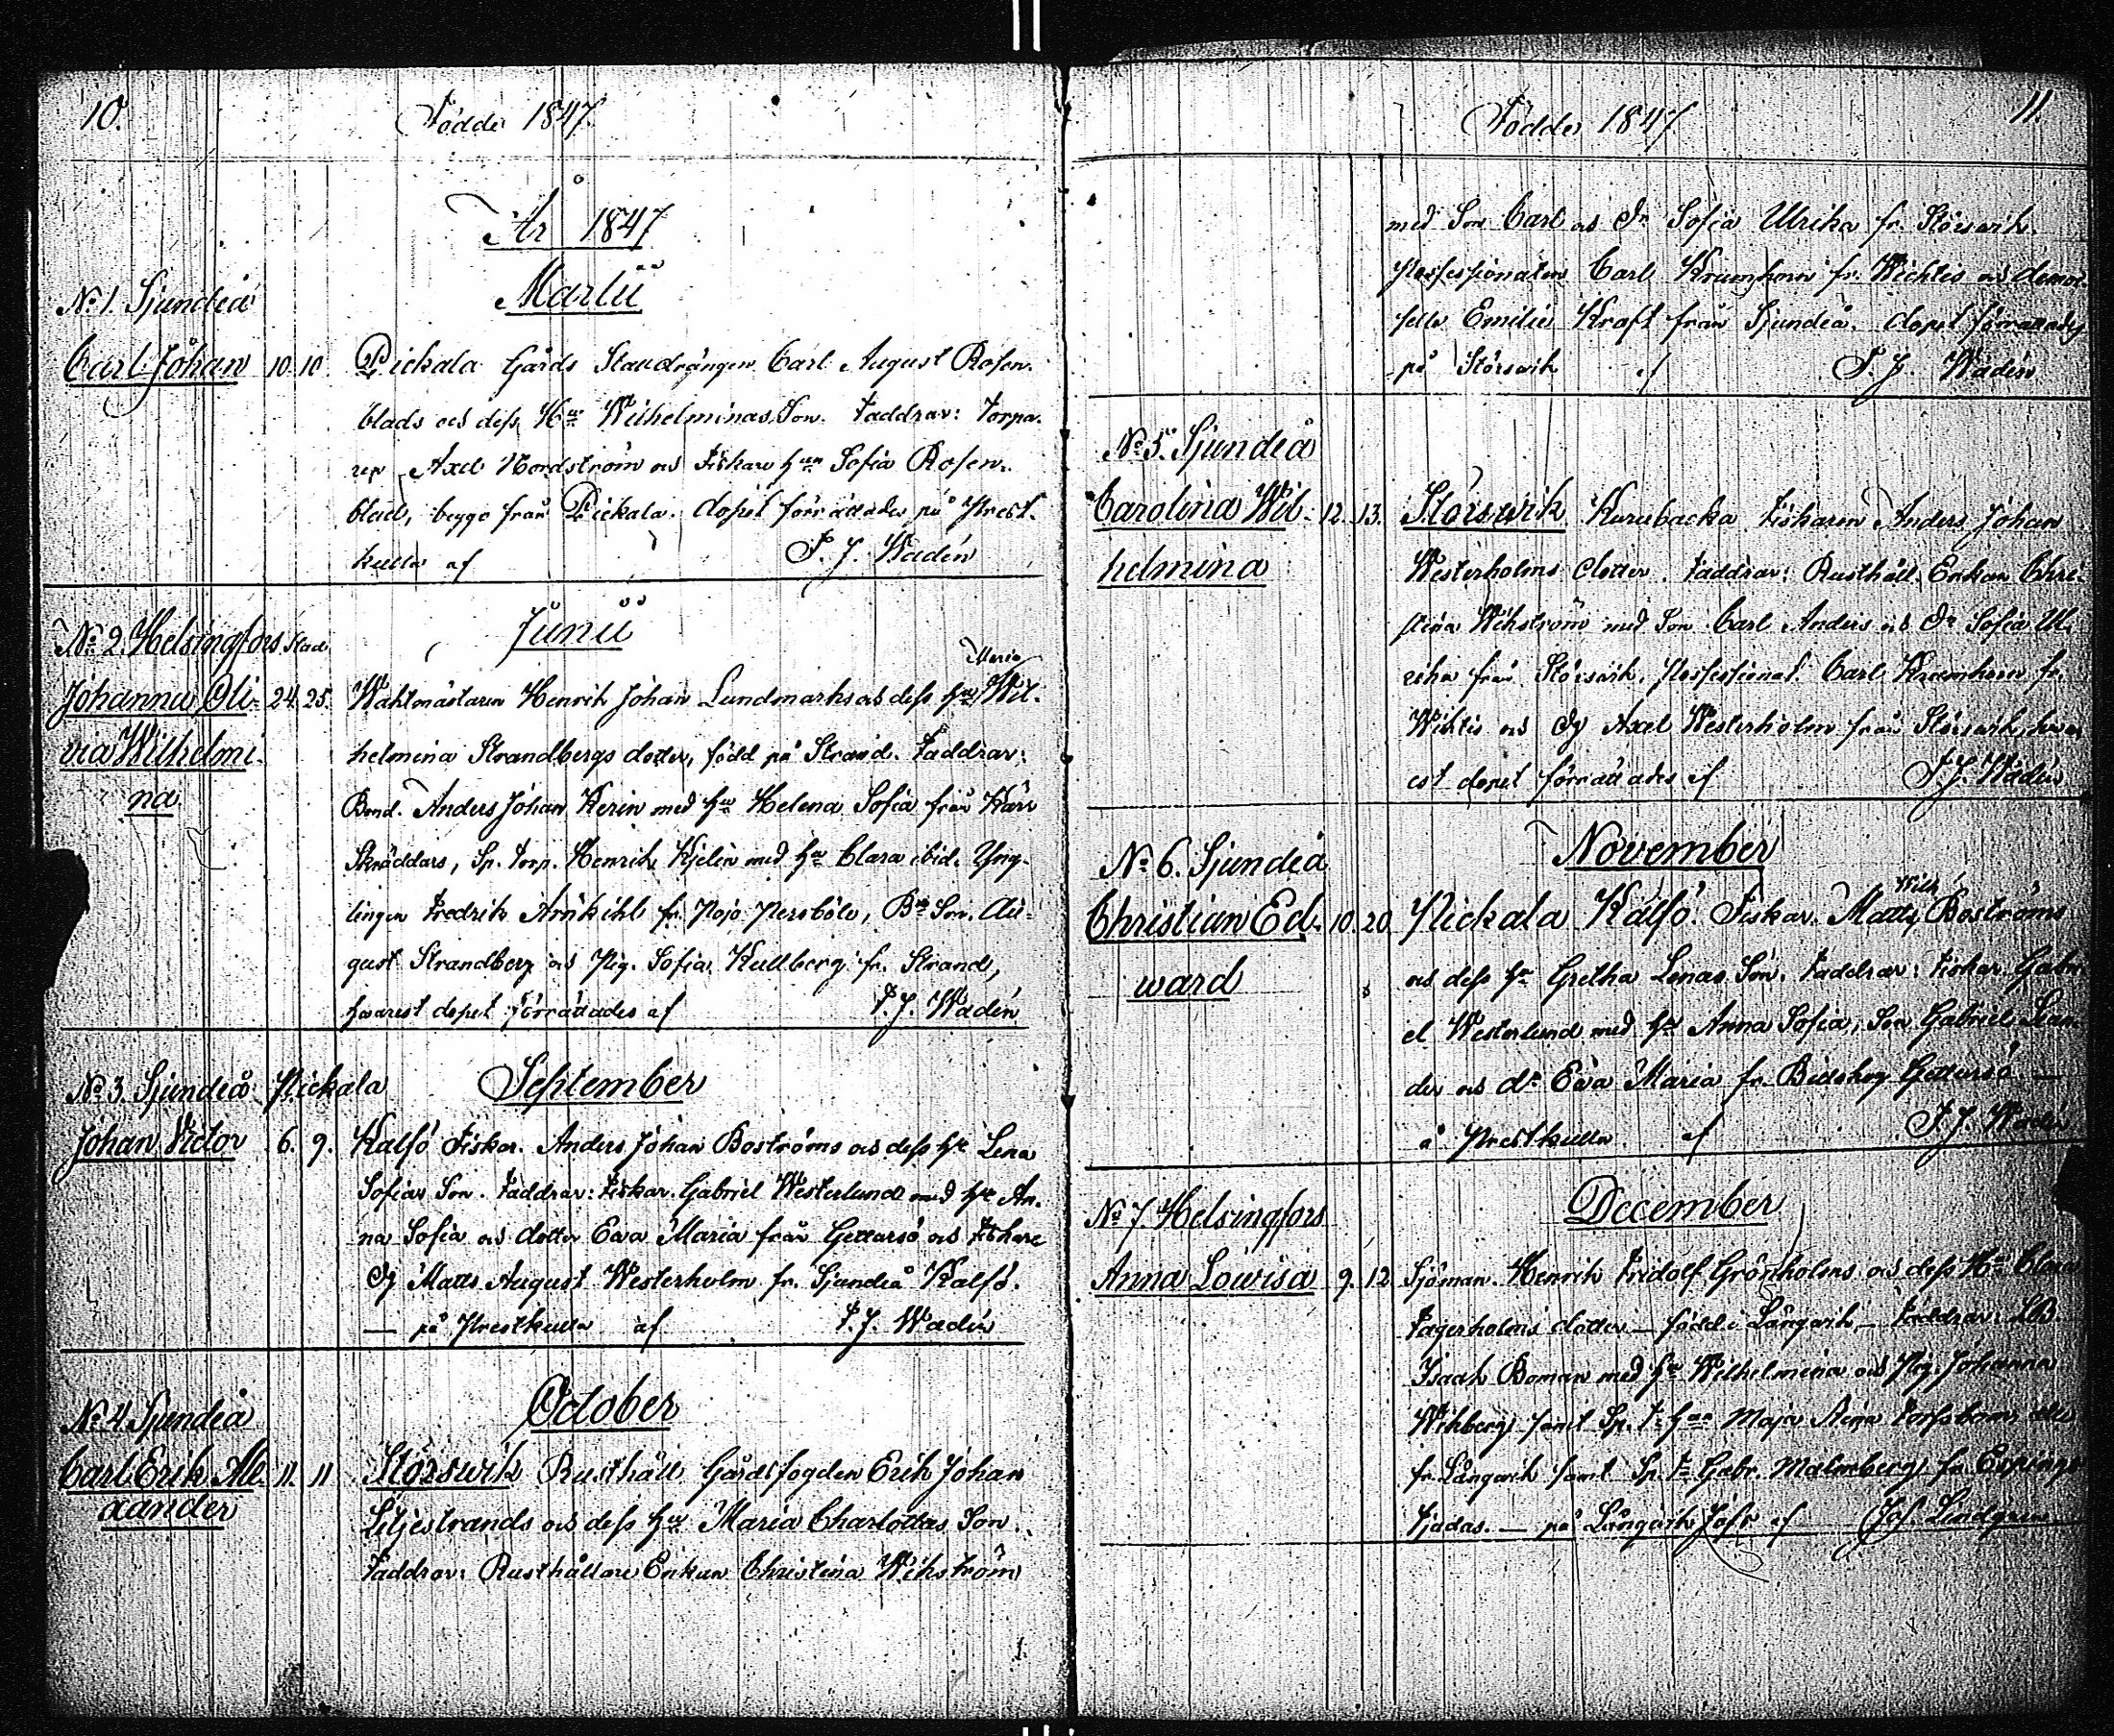 10.
Födde 1847.
År 1847
Martii
No 1. Sjundeå
Carl Johan 10. 10. Pickala Gårds Stalldrängen Carl August Rosen-
blads och dess Hu Wilhelminas Son. Faddrar: Torpa-
ren Axel Nordström och Fiskare hun Sofia Rosen-
blad, begge från Pickala. dopet förrättades på Prest-
kulla af F. J. Wadén
Junii
No 2. Helsingfors stad
Maria
Johanna Oli- 24. 25. Waktmästaren Henrik Johan Lundmarks och dess hu Wil-
via Wilhelmi- helmina Strandbergs dotter, född på Strand. Faddrar:
na Bond. Anders Johan Kerin med hu Helena Sofia från Kärr
Skräddars, Sp. torp. Henrik Kjelin med hu Clara ibid. Yng-
lingen Fredrik fr. Pojo Persböle, Bde Son. Au-
gust Strandberg och Pig. Sofia Kullberg fr. Strand,
hvarest dopet förrättades af F. J. Wadén
No 3. Sjundeå Pickala September
Johan Victor 6. 9. Kalfö Fiskar. Anders Johan Boströms och dess hu Lena
Sofias Son. Faddrar: Fiskar. Gabriel Westerlund med hu An-
na Sofia och dotter Eva Maria från Gettersö och Fiskare
Dg Matts August Westerholm fr. Sjundeå Kalfö.
— på Prestkulla af F. J. Wadén
October
No 4 Sjundeå
Carl Erik Ale- 11. 11 Störswik Rusthåll Gårdsfogden Erik Johan
xander Liljestrands och dess hu Maria Charlottas Son.
Faddrar: Rusthållare Enkan Christina Wikström
11.
Födde 1847
med Son Carl och Dr Sofia Ulrika fr. Störswik.
Professionaten Carl Krumhorn fr. Wichtis och demoi-
selle Emilie Kraft från Sjundeå. dopet förrättades
på Störswik af F. J. Wadén
No 5. Sjundeå
Carolina Wil- 12. 13. Störswik Kurubacka Fiskaren Anders Johan
helmina Westerholms dotter. Faddrar: Rusthåll. Enkan Chri-
stina Wikström med Son Carl Anders och Dr Sofia Ul-
rika från Störswik. Professionat. Carl Krumhorn fr.
Wiktis och Dg Axel Westerholm från Störswik, hvar
est dopet förrättades af F. J. Wadén
November
No 6. Sjundeå
Wilh
Christian Ed- 10. 20. Pickala Kalfö. Fiskar. Matts Boströms
ward och dess hu Gretha Lenas Son. Faddrar: Fiskar. Gabri-
el Westerlund med hu Anna Sofia, Son Gabriel
der och dr Eva Maria fr. Gettersö —
å Prestkulla af F. J. Wadén
December
No 7 Helsingfors
Anna Lowisa 9. 12 Sjöman. Henrik Fridolf Grönholms och dess Hu Clara
Fagerholms dotter — född i Långwik — Faddrar: LB.
Isaak Boman med hu Wilhelmina och Pig. Johanna
Wikberg samt Sp. T. hun Maja Stina alla
fr. Långwik samt Sp. T. Gabr. Malmberg fr.
fjadas. — på Långwik af Jos Lindgren